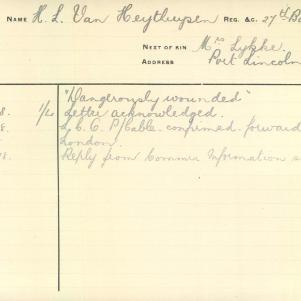 NAME H. L. Van Heythuysen REG. &C. 27th B
NEXT OF KIN Mrs Lykke
ADDRESS Port Lincoln
"Dangerously wounded"
8. 1/20 Letter acknowledged.
8. P/Cable confirmed forward
London.
8. Reply from Commn Information s